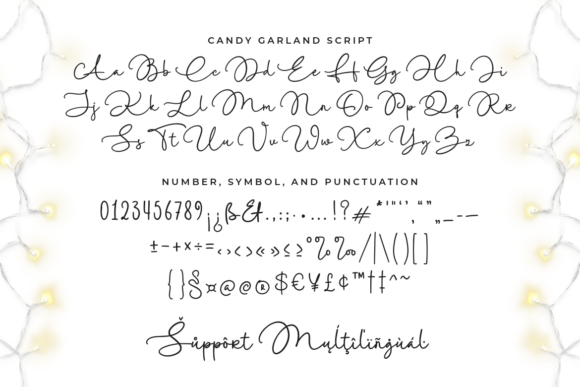 CANDY GARLAND SCRIPT
Aa Bb Cc Dd Ee Ff Gg Hh Ii
Jj Kk Ll Mm Nn Oo Pp Qq Rr
Ss Tt Uu Vv Ww Xx Yy Zz
NUMBER, SYMBOL, AND PUNCTUATION
0123456789¡¿ß&.,:;·•…!?#*"'“‘’,“”„_-–—
±-+×÷=‹›<>«»≤≥°%‰/|\()[]
{}§¤@©®$€¥£¢™†‡^~
Šůppôrt Mųĺţîľïñģùál